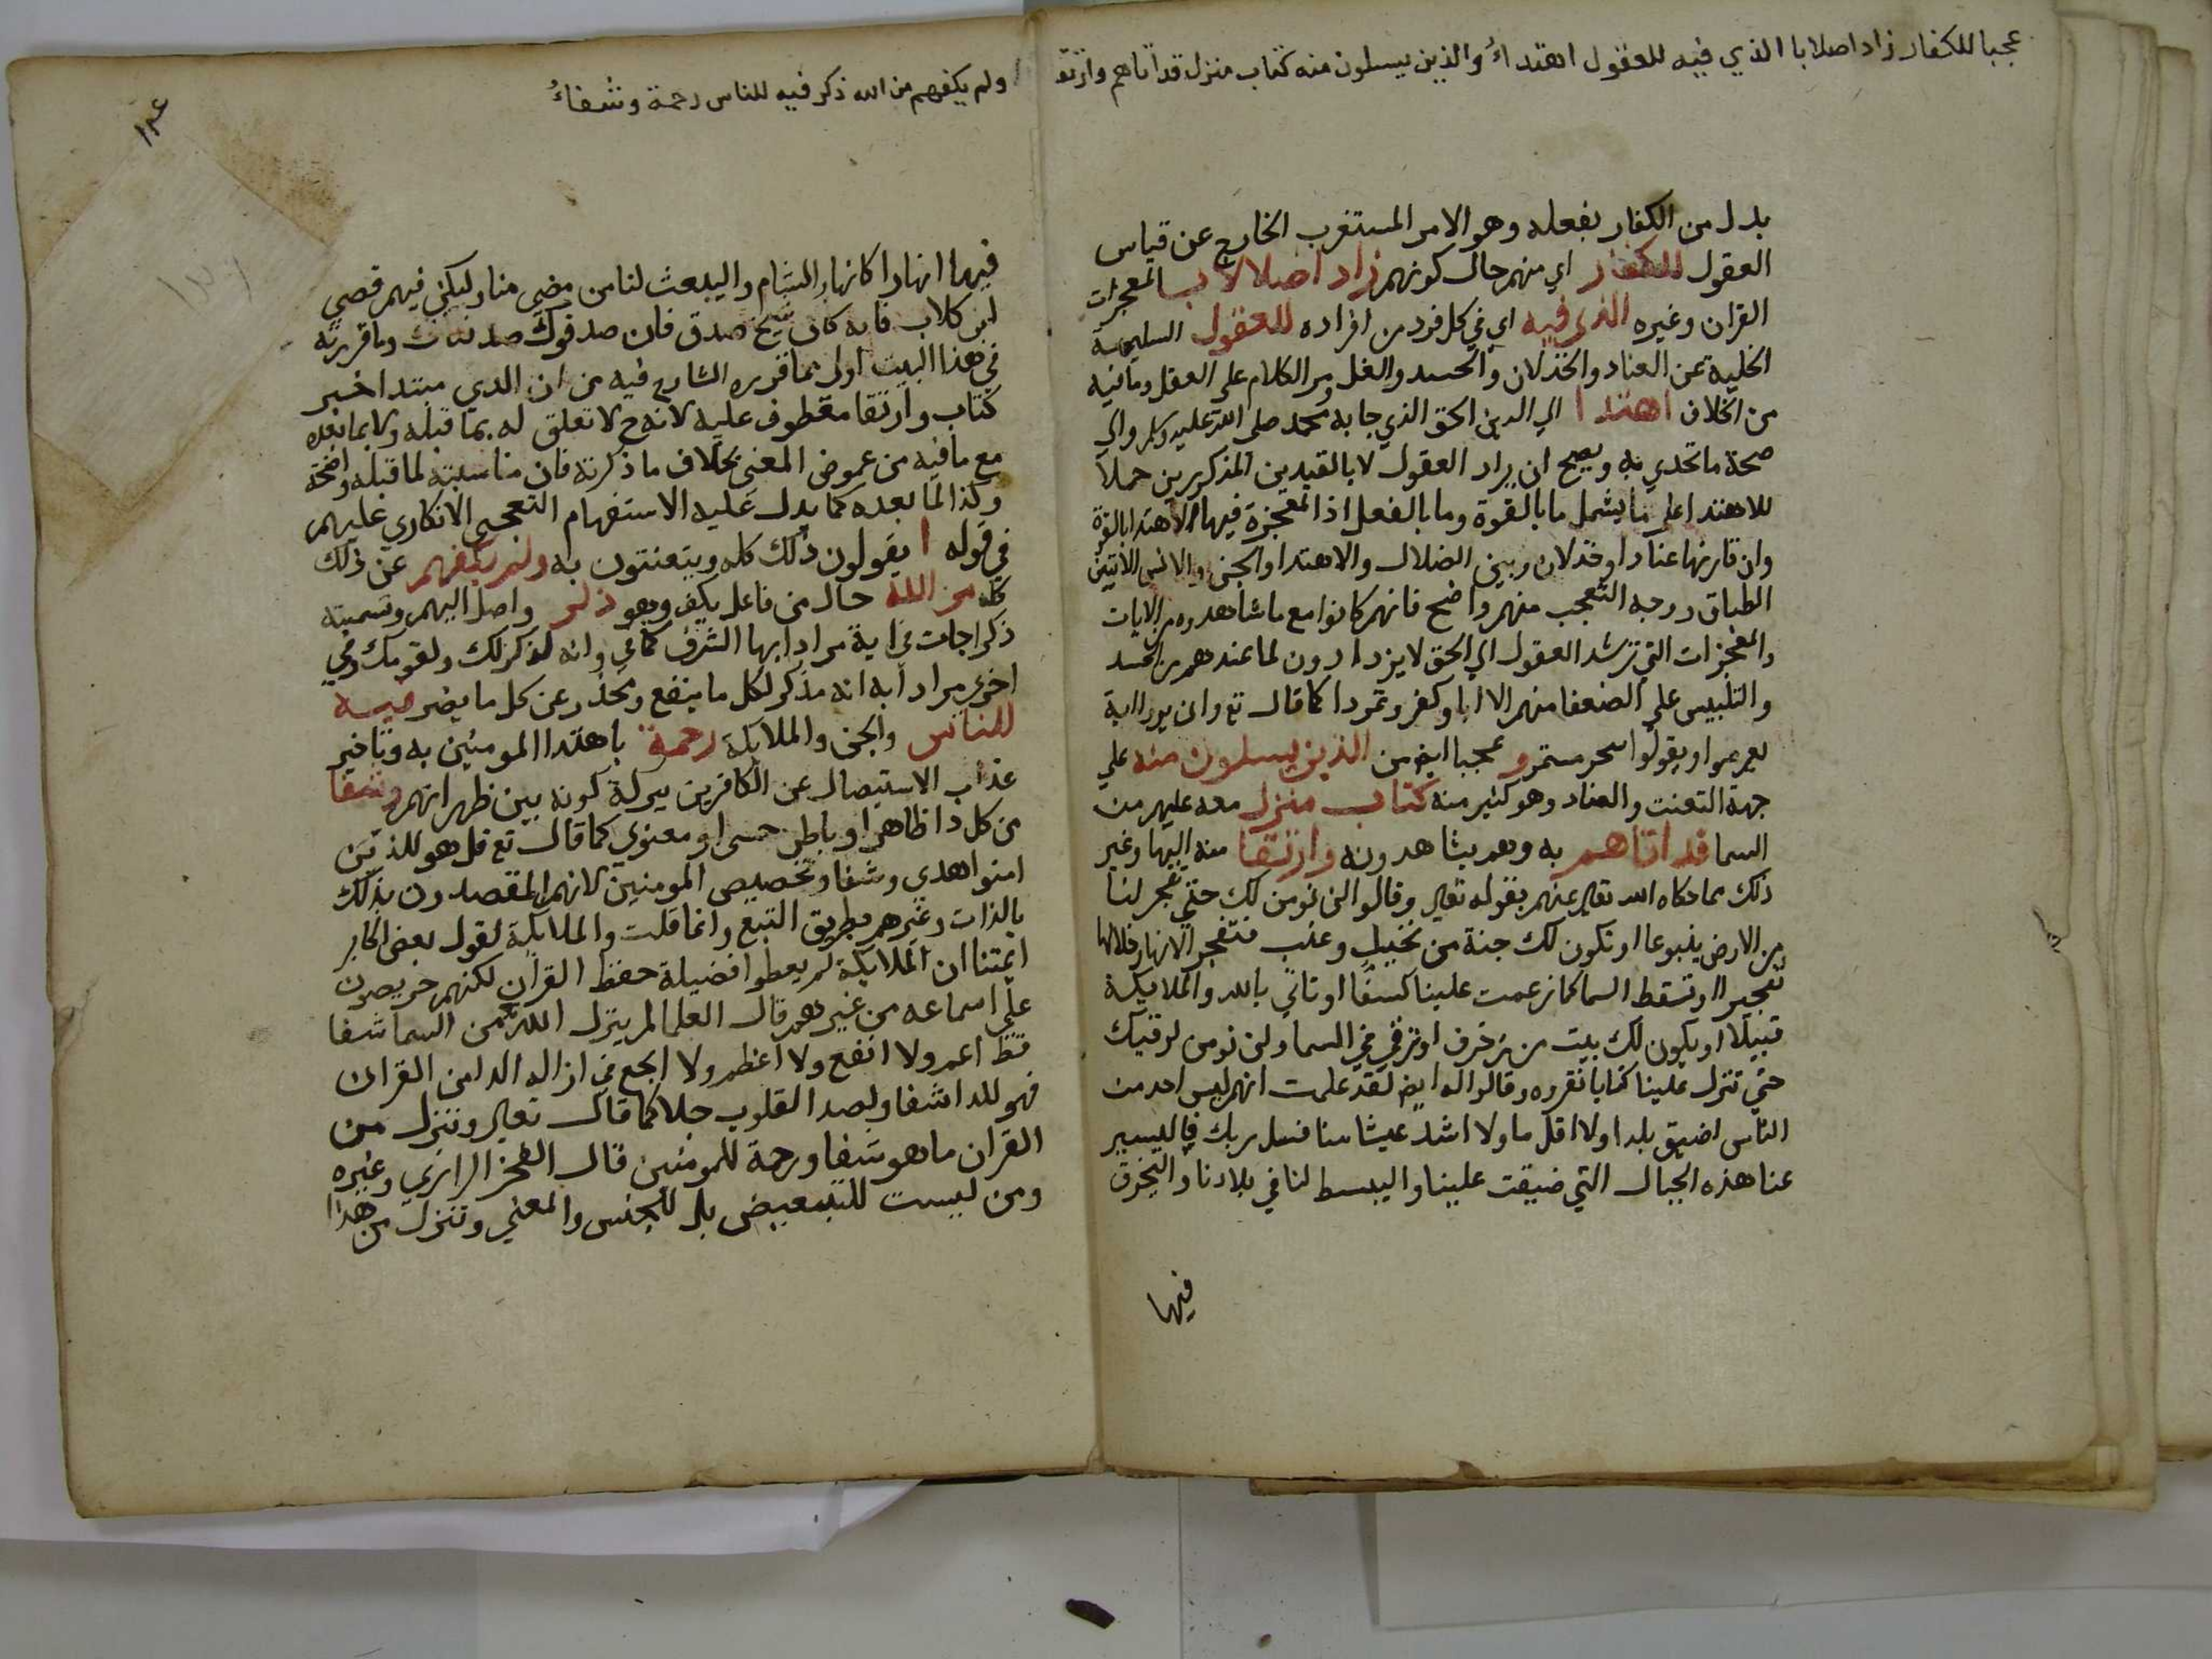 عجبا للكفار زاد اضلالا با الذي فيه للعقول اهتداءُ والذين يسلون منه كتاب منزل قد اتاهم وارتقا
بدل من الكفار بفعله وهو الامر المستغرب الخارج عن قياس
العقول للكفار اي منهم حال كونهم زاد اضلالا بالمعجزات
القران وغيره الذي فيه اي في كل فرد من افراده للعقول السليمة
الخلية عن العناد والخذلان والحسد والغل ومر الكلام على العقل وما فيه
من الخلاف اهتدا الي الدين الحق الذي جا به محمد صلى الله عليه وسلم والي
صحة ما تحدي به ويصح ان يراد العقول لا بالقيدين المذكورين حملا
للاهتدا على ما يشمل ما بالقوة وما بالفعل اذ المعجزة فيها الاهتدا بالقوة
وان قارنها عنادا او خذلان وبين الضلال والاهتدا والجن والانس الاتيين
الطباق ووجه التعجب منهم واضح فانهم كانوا مع ما شاهدوه من الايات
والمعجزات التي ترشد العقول الي الحق لا يزدادون لما عندهم من الحسد
والتلبيس علي الضعفا منهم الا ابا وكفر وتمردا كما قال تع وان يروا اية
يعرضوا ويقولوا سحر مستمر و عجبا ايض من الذين يسلون منه علي
جهة التعنت والعناد وهو كثير منه كتاب منزل معه عليهم من
السما قد اتاهم به وهم يشاهدونه وارتقا منه اليها وغير
ذلك مما حكاه الله تعالي عنهم بقوله تعالي وقالوا لن نومن لك حتي تفجر لنا
من الارض ينبوعا او تكون لك جنة من نخيل وعنب فتفجر الانهار خلالها
تفجيرا او تسقط السما كما زعمت علينا كسفا او تاتي بالله والملايكة
قبيلا او يكون لك بيت من زخرف او ترقي في السما ولن نومن لرقيك
حتي تنزل علينا كتابا نقروه وقالوا له ايض لقد علمت انهم ليس احد من
الناس اضيق بلدا ولا اقل ما ولا اشد عيشا منا فسل ربك فاليسير
عنا هذه الجبال التي ضيقت علينا واليبسط لنا في بلادنا واليخرق
فيها
ولم يكفهم من الله ذكر فيه للناس رحمة وشفاءُ
فيها انهارا كانهار الشام واليبعث لنا من مضي منا وليكن فيهم قصي
ابن كلاب فانه كان شيخ صدق فان صدقوك صدقناك وما قررته
في هذا البيت اولي مما قرره الشارح فيه من ان الذي مبتدا خبر
كتاب وارتقا معطوف عليه لانه ح لا تعلق له بما قبله ولا بما بعده
مع ما فيه من غموض المعني بخلاف ما ذكرته فان مناسبته لما قبله واضحة
وكذا لما بعده كما يدل عليه الاستفهام التعجبي الانكاري عليهم
في قوله ا يقولون ذلك كله ويتعنتون به ولم يكفهم عن ذلك
كله من الله حال من فاعل يكف وهو ذكر واصل اليهم وتسميته
ذكرا جات في اية مرادا بها الشرف كما في وانه لذكر لك ولقومك وفي
اخري مرادا به انه مذكر لكل ما ينفع ومحذر عن كل ما يضر فيه
للناس والجن والملايكة رحمة باهتدا المومنين به وتاخير
عذاب الاستيصال عن الكافرين ببركة كونه بين ظهرانهم وشفا
من كل دا ظاهر او باطن حسي او معنوي كما قال تع قل هو للذين
امنوا هدي وشفا وتخصيص المومنين لانهم المقصدون بذلك
بالذات وغيرهم بطريق التبع وانما قلت والملايكة لقول بعض اكابر
ايمتنا ان الملايكة لم يعطوا فضيلة حفظ القران لكنهم حريصون
علي اسماعه من غيرهم قال العلما لم ينزل الله تع من السما شفا
قط اعم ولا انفع ولا اعظم ولا انجع في ازاله الدا من القران
فهو للدا شفا ولصدا القلوب جلا كما قال تعالي وننزل من
القران ما هو شفا ورحمة للمومنين قال الفخر الرازي وغيره
ومن ليست للتبعيض بل للجنس والمعني وننزل من هذا